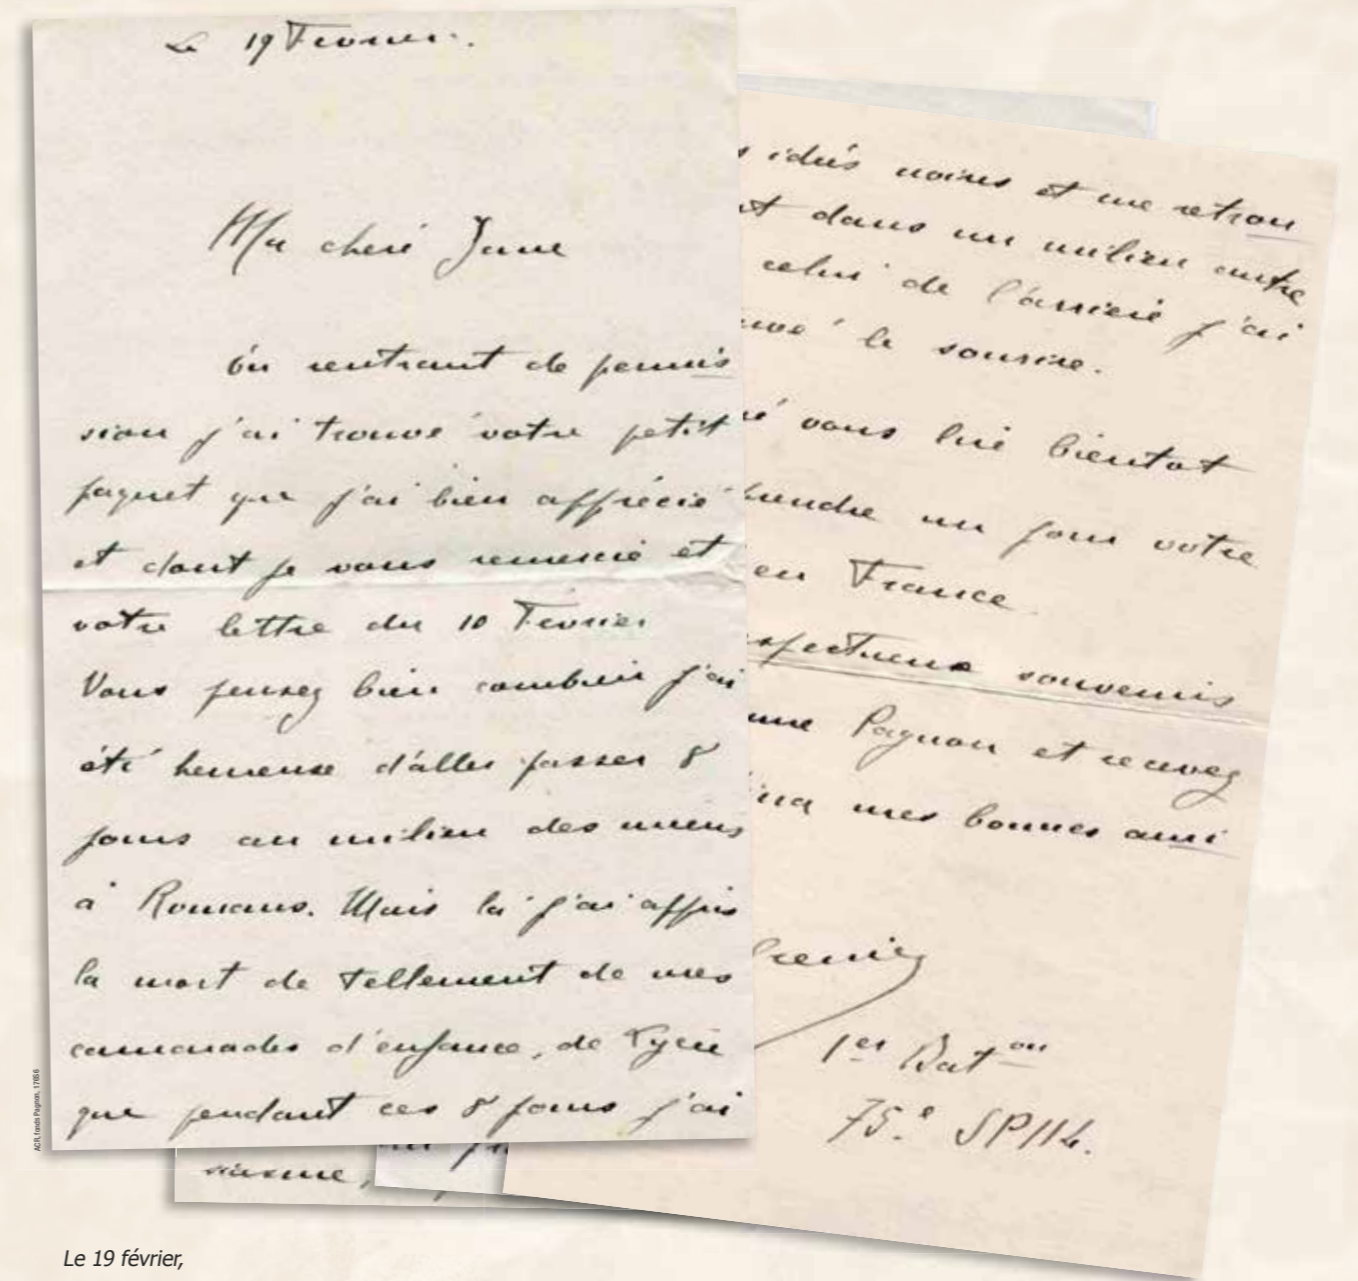 Le 19 Fevrier.
Ma cheré Jane
En rentrant de permis
sion j'ai trouvé votre petit
paquet que j'ai bien apprécié
et dont je vous remercie et
votre lettre du 10 Fevrier
Vous pensez bien combien j'ai
été heureuse d'aller passer 8
jours au milieu des miens
à Romans. Mais là j'ai appris
la mort de tellement de mes
camarades d'enfance, de Lycée
que pendant ces 8 jours j'ai
idées noires et me retrou
dans un milieu autre
celui de l'arriere j'ai
le sourire.
vous lire bientot
un jour votre
en France
souvenirs
Pagnon et recevez
mes bonnes ami
1er Baton
75e SP 114.
ACR, fonds Pagnon, 17656
Le 19 février,